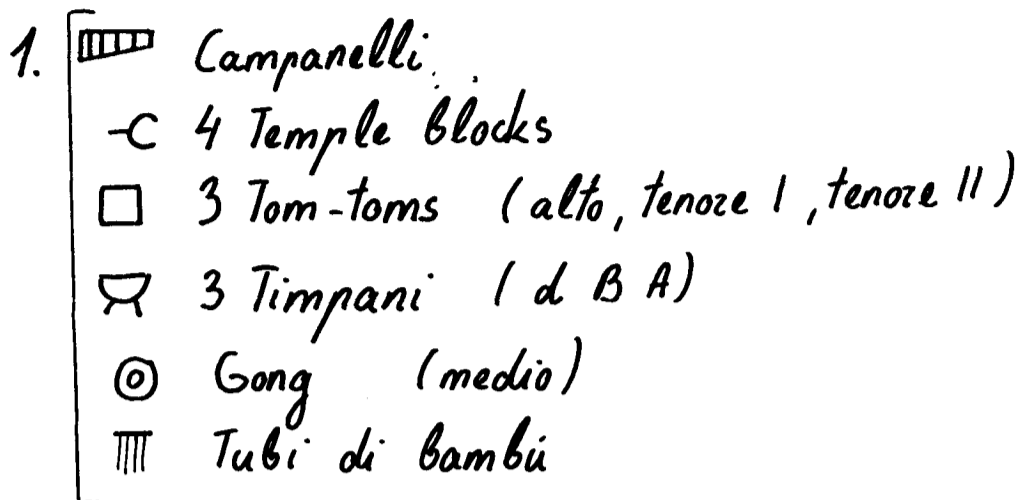 1. Campanelli
4 Temple blocks
3 Tom-toms (alto, tenore I, tenore II)
3 Timpani (d B A)
Gong (medio)
Tubi di bambú